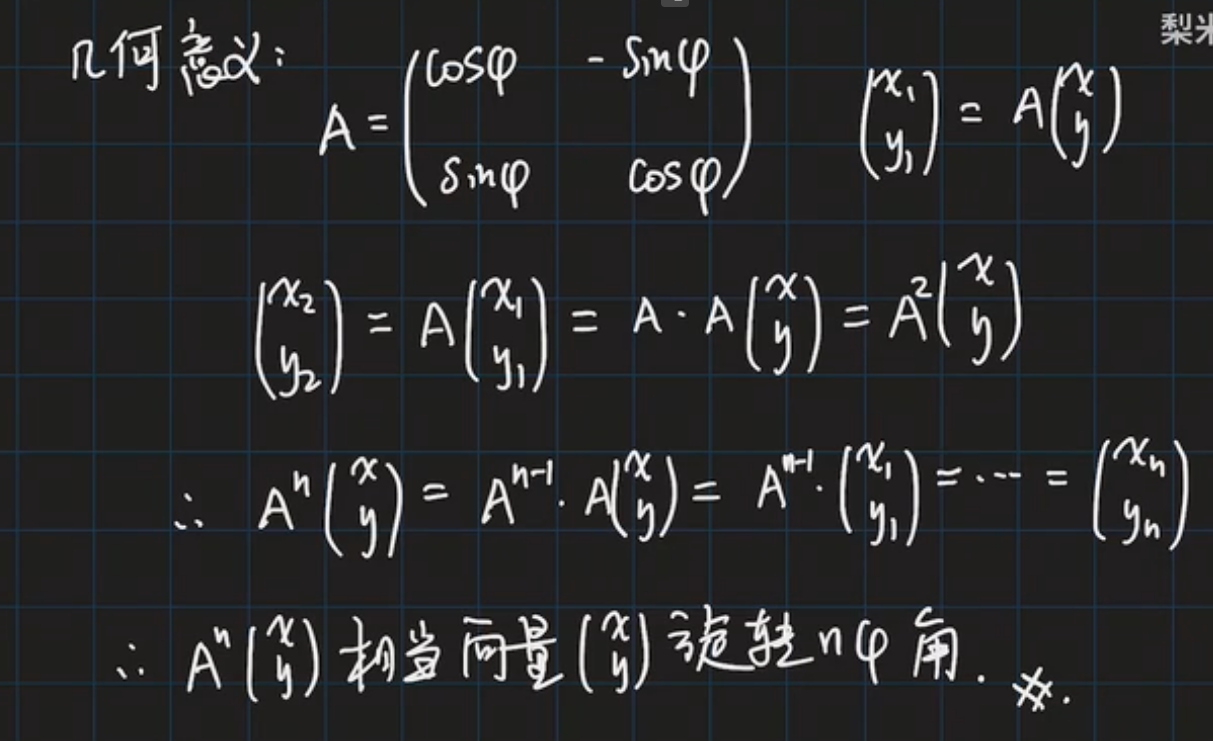 梨米
几何意义: A = (cosφ -sinφ; sinφ cosφ) (x₁; y₁) = A(x; y)
(x₂; y₂) = A(x₁; y₁) = A · A(x; y) = A²(x; y)
∴ Aⁿ(x; y) = Aⁿ⁻¹ · A(x; y) = Aⁿ⁻¹ · (x₁; y₁) = ··· = (xₙ; yₙ)
∴ Aⁿ(x; y) 相当向量(x; y) 旋转nφ角. #.